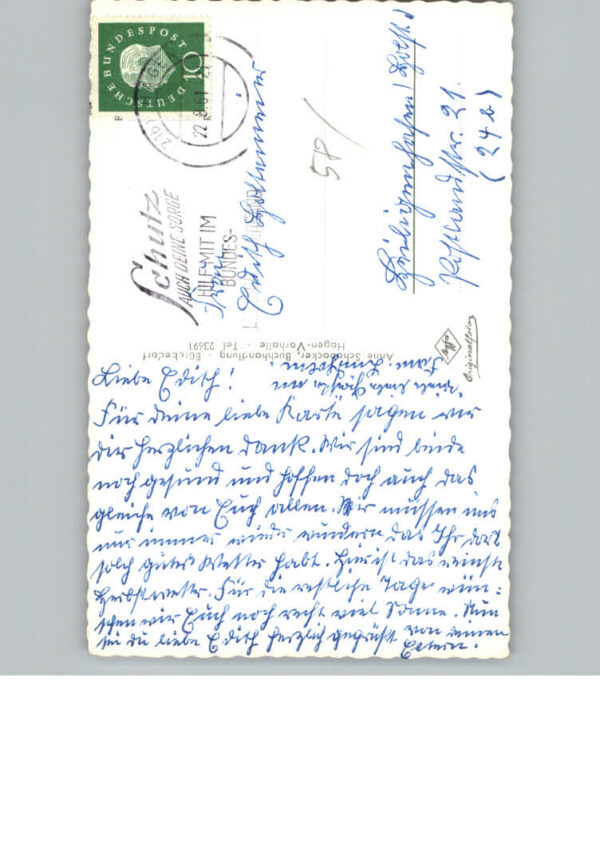 Liebe Edith!
Für deine liebe Karte sagen wir
dir herzlichen Dank. Wir sind beide
noch gesund und hoffen doch auch das
gleiche von Euch allen. Wir müssen uns
nur immer wieder wundern das Ihr dort
solch gutes Wetter habt. Hier ist das reinste
Herbstwetter. Für die restliche Tage wün-
schen wir Euch noch recht viel Sonne. Nun
sei du liebe Edith herzlich gegrüßt von deinen
Eltern.
Viele liebe Grüße an
Fam.
Anne Schabacker, Buchhandlung - Bürobedarf
Hagen-Vorhalle - Tel. 23691
DEUTSCHE BUNDESPOST
10
22.8.61
Schutz
AUCH DEINE SORGE
HILF MIT IM
BUNDES-
Edith
Heiligenhafen/Holst.
21.
(24b)
5P/
Agfa
Originalfoto